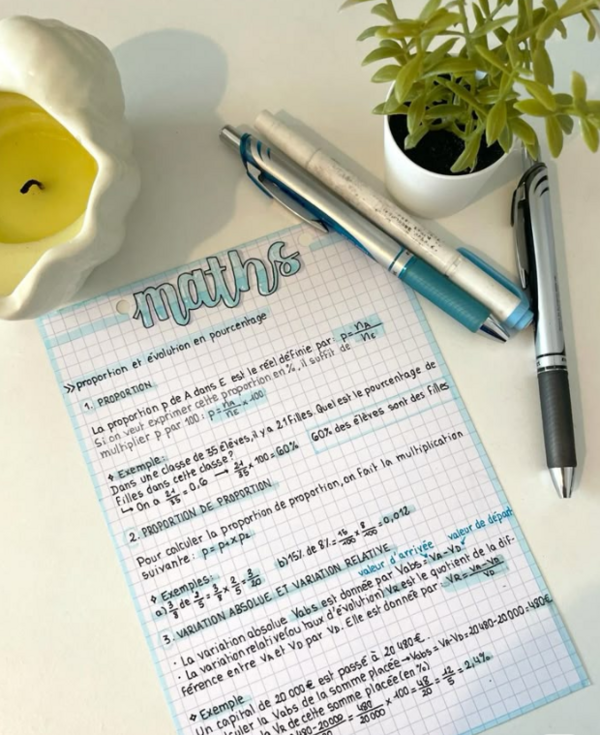 maths
>> proportion et évolution en pourcentage
1. PROPORTION
La proportion p de A dans E est le réel définie par: p = nA/nE
Si on veut exprimer cette proportion en %, il suffit de
multiplier p par 100: p = nA/nE × 100
◆ Exemple:
Dans une classe de 35 élèves, il y a 21 filles. Quel est le pourcentage de
filles dans cette classe?
↳ On a 21/35 = 0,6 → 21/35 × 100 = 60% 60% des élèves sont des filles
2. PROPORTION DE PROPORTION
Pour calculer la proportion de proportion, on fait la multiplication
suivante: p = p1 × p2
◆ Exemples:
a) 3/8 de 2/5 = 3/8 × 2/5 = b) 15% de 8% = × 8/100 = 0,012
3. VARIATION ABSOLUE ET VARIATION RELATIVE
valeur d'arrivée valeur de départ
· La variation absolue Vabs est donnée par Vabs = VA - VD.
· La variation relative (ou taux d'évolution) VR est le quotient de la dif-
férence entre VA et VD par VD. Elle est donnée par: VR = VA - VD/VD
◆ Exemple
Un capital de 20 000 € est passé à 20 480 €.
la Vabs de la somme placée → Vabs = VA - VD = 20 480 - 20 000 = 480€
la VR de cette somme placée (en %)
480 - 20000 = 480/20000 × 100 = 48/20 = 12/5 = 2,4%